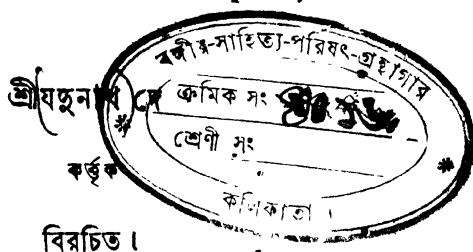 বঙ্গীয়-সাহিত্য-পরিষৎ-গ্রন্থাগার
শ্রীযদুনাথ দে
ক্রমিক সং
শ্রেণী সং
কর্ত্তৃক
কলিকাতা ।
বিরচিত ।